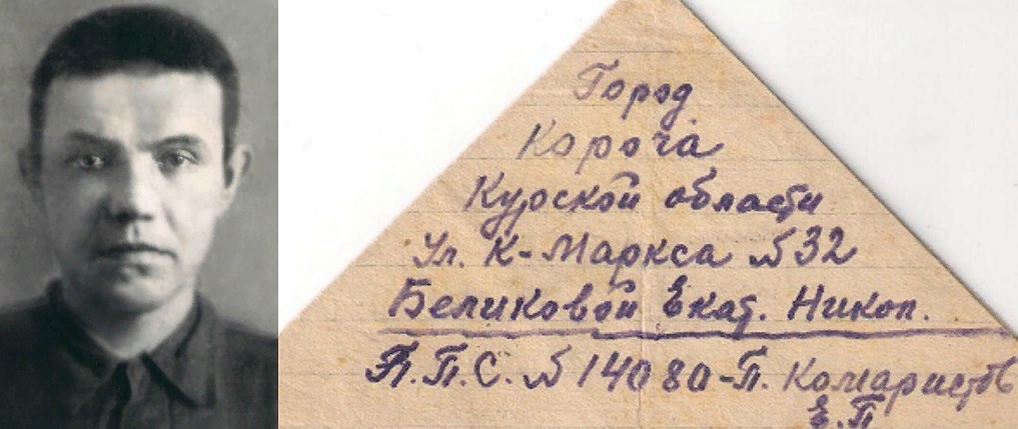 Город
Короча
Курской области
Ул. К-Маркса №32
Беликовой Екат. Никол.
П.П.С. №14080-П. Комаристов
Е.П